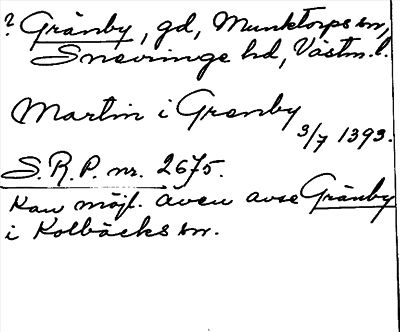 ? Gränby, gd, Munktorps sn,
Snevringe hd, Västm. l.
Martin i Grenby
3/7 1393.
S.R.P. nr. 2675.
Kan möjl. även avse Gränby
i Kolbäcks sn.